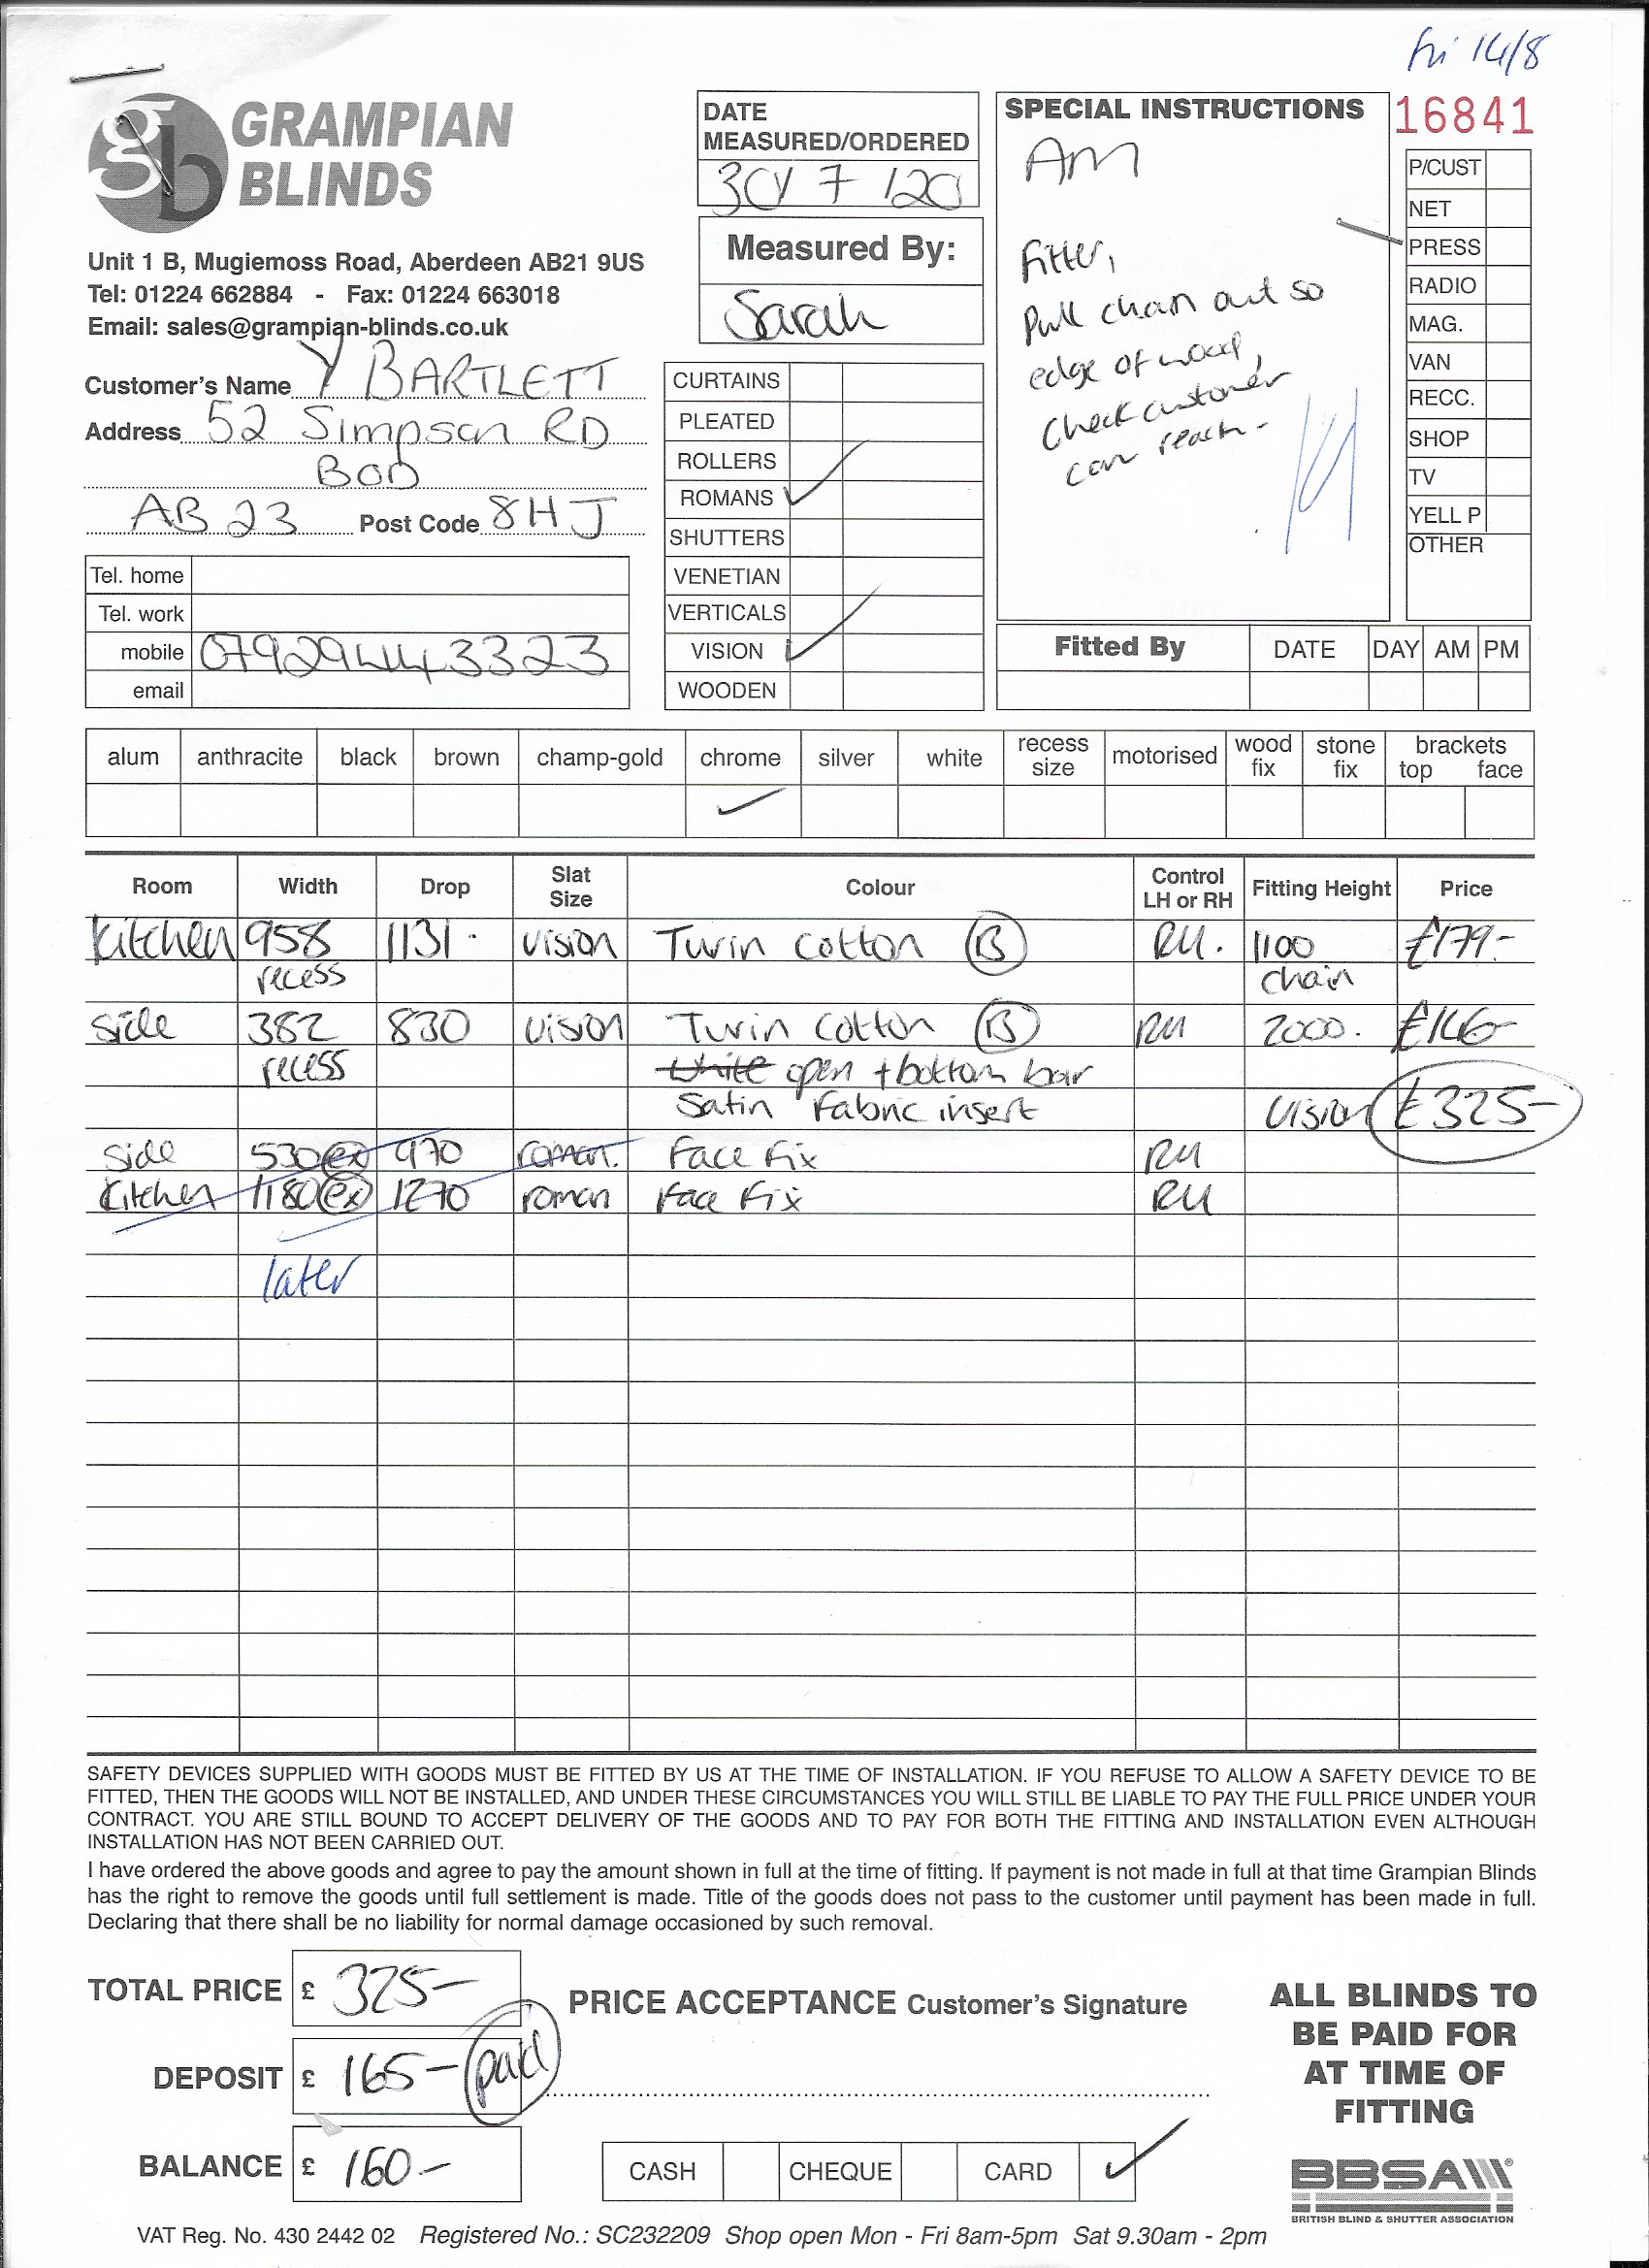 Fri 14/8
GRAMPIAN
BLINDS
Unit 1 B, Mugiemoss Road, Aberdeen AB21 9US
Tel: 01224 662884 - Fax: 01224 663018
Email: sales@grampian-blinds.co.uk
Customer's Name Y BARTLETT
Address 52 Simpson RD
BOD
AB23 Post Code 8HJ
Tel. home
Tel. work
mobile 07929443323
email
DATE
MEASURED/ORDERED
30/7/20
Measured By:
Sarah
CURTAINS
PLEATED
ROLLERS
ROMANS ✓
SHUTTERS
VENETIAN
VERTICALS
VISION ✓
WOODEN
SPECIAL INSTRUCTIONS
AM
Fitter,
Pull chain out so
edge of wood,
Check customer
can reach-
16841
P/CUST
NET
PRESS
RADIO
MAG.
VAN
RECC.
SHOP
TV
YELL P
OTHER
Fitted By DATE DAY AM PM
alum anthracite black brown champ-gold chrome silver white recess size motorised wood fix stone fix brackets top face
✓
Room Width Drop Slat Size Colour Control LH or RH Fitting Height Price
Kitchen 958 1131 . vision Twin cotton B RH. 1100 £179-
recess chain
Side 382 830 vision Twin cotton B RH 2000. £146-
recess White open + bottom bar
Satin Fabric insert vision £325-
Side 530 ex 970 roman. Face Fix RH
Kitchen 1180 ex 1270 roman Face Fix RH
later
SAFETY DEVICES SUPPLIED WITH GOODS MUST BE FITTED BY US AT THE TIME OF INSTALLATION. IF YOU REFUSE TO ALLOW A SAFETY DEVICE TO BE
FITTED, THEN THE GOODS WILL NOT BE INSTALLED, AND UNDER THESE CIRCUMSTANCES YOU WILL STILL BE LIABLE TO PAY THE FULL PRICE UNDER YOUR
CONTRACT. YOU ARE STILL BOUND TO ACCEPT DELIVERY OF THE GOODS AND TO PAY FOR BOTH THE FITTING AND INSTALLATION EVEN ALTHOUGH
INSTALLATION HAS NOT BEEN CARRIED OUT.
I have ordered the above goods and agree to pay the amount shown in full at the time of fitting. If payment is not made in full at that time Grampian Blinds
has the right to remove the goods until full settlement is made. Title of the goods does not pass to the customer until payment has been made in full.
Declaring that there shall be no liability for normal damage occasioned by such removal.
TOTAL PRICE £ 325-
DEPOSIT £ 165- paid
BALANCE £ 160.-
PRICE ACCEPTANCE Customer's Signature
CASH CHEQUE CARD ✓
ALL BLINDS TO
BE PAID FOR
AT TIME OF
FITTING
BBSA
BRITISH BLIND & SHUTTER ASSOCIATION
VAT Reg. No. 430 2442 02 Registered No.: SC232209 Shop open Mon - Fri 8am-5pm Sat 9.30am - 2pm